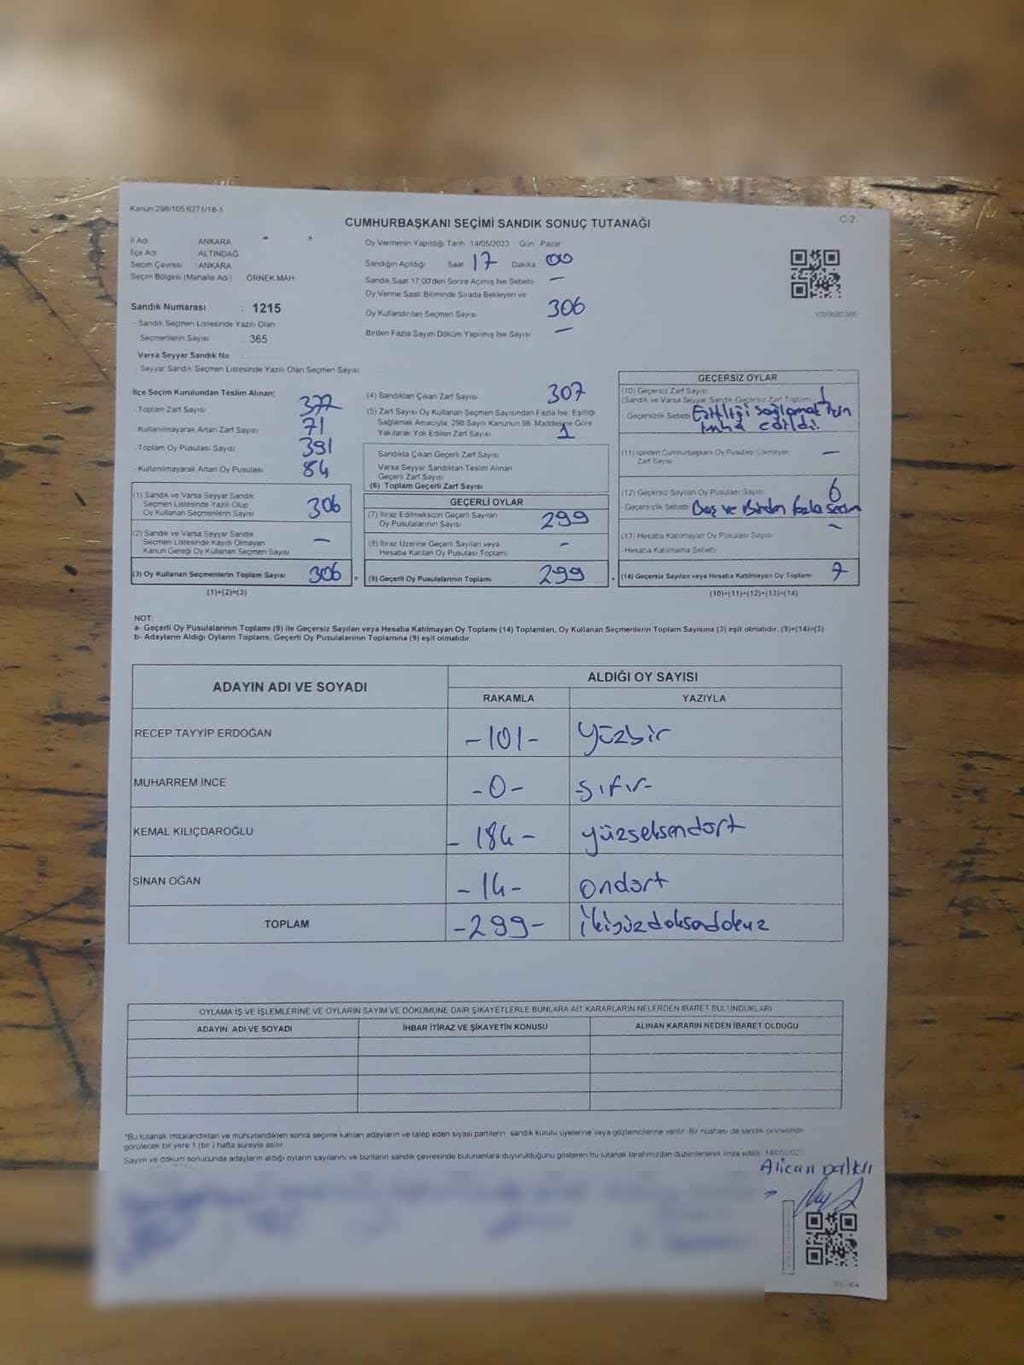 Kanun:298/105,6271/18-1
C-2
CUMHURBAŞKANI SEÇİMİ SANDIK SONUÇ TUTANAĞI
İl Adı ANKARA
İlçe Adı ALTINDAĞ
Seçim Çevresi : ANKARA
Seçim Bölgesi (Mahalle Adı) : ÖRNEK MAH.
Sandık Numarası : 1215
- Sandık Seçmen Listesinde Yazılı Olan
Seçmenlerin Sayısı 365
Varsa Seyyar Sandık No
Seyyar Sandık Seçmen Listesinde Yazılı Olan Seçmen Sayısı
Oy Vermenin Yapıldığı Tarih 14/05/2023 Gün Pazar
Sandığın Açıldığı Saat 17 Dakika 00
Sandık Saat 17.00'den Sonra Açılmış İse Sebebi —
Oy Verme Saati Bitiminde Sırada Bekleyen ve
Oy Kullandırılan Seçmen Sayısı 306
Birden Fazla Sayım Döküm Yapılmış İse Sayısı —
İlçe Seçim Kurulundan Teslim Alınan:
- Toplam Zarf Sayısı 377
- Kullanılmayarak Artan Zarf Sayısı 71
- Toplam Oy Pusulası Sayısı 391
- Kullanılmayarak Artan Oy Pusulası 84
(1) Sandık ve Varsa Seyyar Sandık
Seçmen Listesinde Yazılı Olup
Oy Kullanan Seçmenlerin Sayısı 306
(2) Sandık ve Varsa Seyyar Sandık
Seçmen Listesinde Kayıtlı Olmayan
Kanun Gereği Oy Kullanan Seçmen Sayısı —
(3) Oy Kullanan Seçmenlerin Toplam Sayısı 306
(1)+(2)=(3)
(4) Sandıktan Çıkan Zarf Sayısı 307
(5) Zarf Sayısı Oy Kullanan Seçmen Sayısından Fazla İse; Eşitliği
Sağlamak Amacıyla, 298 Sayılı Kanunun 98. Maddesine Göre
Yakılarak Yok Edilen Zarf Sayısı 1
Sandıkta Çıkan Geçerli Zarf Sayısı
Varsa Seyyar Sandıktan Teslim Alınan
Geçerli Zarf Sayısı
(6) Toplam Geçerli Zarf Sayısı
GEÇERLİ OYLAR
(7) İtiraz Edilmeksizin Geçerli Sayılan
Oy Pusulalarının Sayısı 299
(8) İtiraz Üzerine Geçerli Sayılan veya
Hesaba Katılan Oy Pusulası Toplamı -
(9) Geçerli Oy Pusulalarının Toplamı 299
GEÇERSİZ OYLAR
(10) Geçersiz Zarf Sayısı
(Sandık ve Varsa Seyyar Sandık Geçersiz Zarf Toplamı) 1
Geçersizlik Sebebi Eşitliği sağlamak için
imha edildi.
(11) İçinden Cumhurbaşkanı Oy Pusulası Çıkmayan
Zarf Sayısı —
(12) Geçersiz Sayılan Oy Pusulası Sayısı 6
Geçersizlik Sebebi Boş ve Birden fazla seçim
(13) Hesaba Katılmayan Oy Pusulası Sayısı —
Hesaba Katılmama Sebebi
(14) Geçersiz Sayılan veya Hesaba Katılmayan Oy Toplamı 7
(10)+(11)+(12)+(13)=(14)
NOT:
a- Geçerli Oy Pusulalarının Toplamı (9) ile Geçersiz Sayılan veya Hesaba Katılmayan Oy Toplamı (14) Toplamları, Oy Kullanan Seçmenlerin Toplam Sayısına (3) eşit olmalıdır. (9)+(14)=(3)
b- Adayların Aldığı Oyların Toplamı, Geçerli Oy Pusulalarının Toplamına (9) eşit olmalıdır.
ADAYIN ADI VE SOYADI
ALDIĞI OY SAYISI
RAKAMLA YAZIYLA
RECEP TAYYİP ERDOĞAN -101- yüzbir
MUHARREM İNCE -0- sıfır-
KEMAL KILIÇDAROĞLU - 184 - yüzseksendört
SİNAN OĞAN -14- ondört
TOPLAM -299- ikiyüzdoksandokuz
OYLAMA İŞ VE İŞLEMLERİNE VE OYLARIN SAYIM VE DÖKÜMÜNE DAİR ŞİKAYETLERLE BUNLARA AİT KARARLARIN NELERDEN İBARET BULUNDUKLARI
ADAYIN ADI VE SOYADI İHBAR İTİRAZ VE ŞİKAYETİN KONUSU ALINAN KARARIN NEDEN İBARET OLDUĞU
*Bu tutanak imzalandıktan ve mühürlendikten sonra seçime katılan adayların ve talep eden siyasi partilerin sandık kurulu üyelerine veya gözlemcilerine verilir. Bir nüshası da sandık çevresinde
görülecek bir yere 1 (bir) hafta süreyle asılır.
Sayım ve döküm sonucunda adayların aldığı oyların sayılarını ve bunların sandık çevresinde bulunanlara duyurulduğunu gösteren bu tutanak tarafımızdan düzenlenerek imza edildi. 14/05/2023
Alican